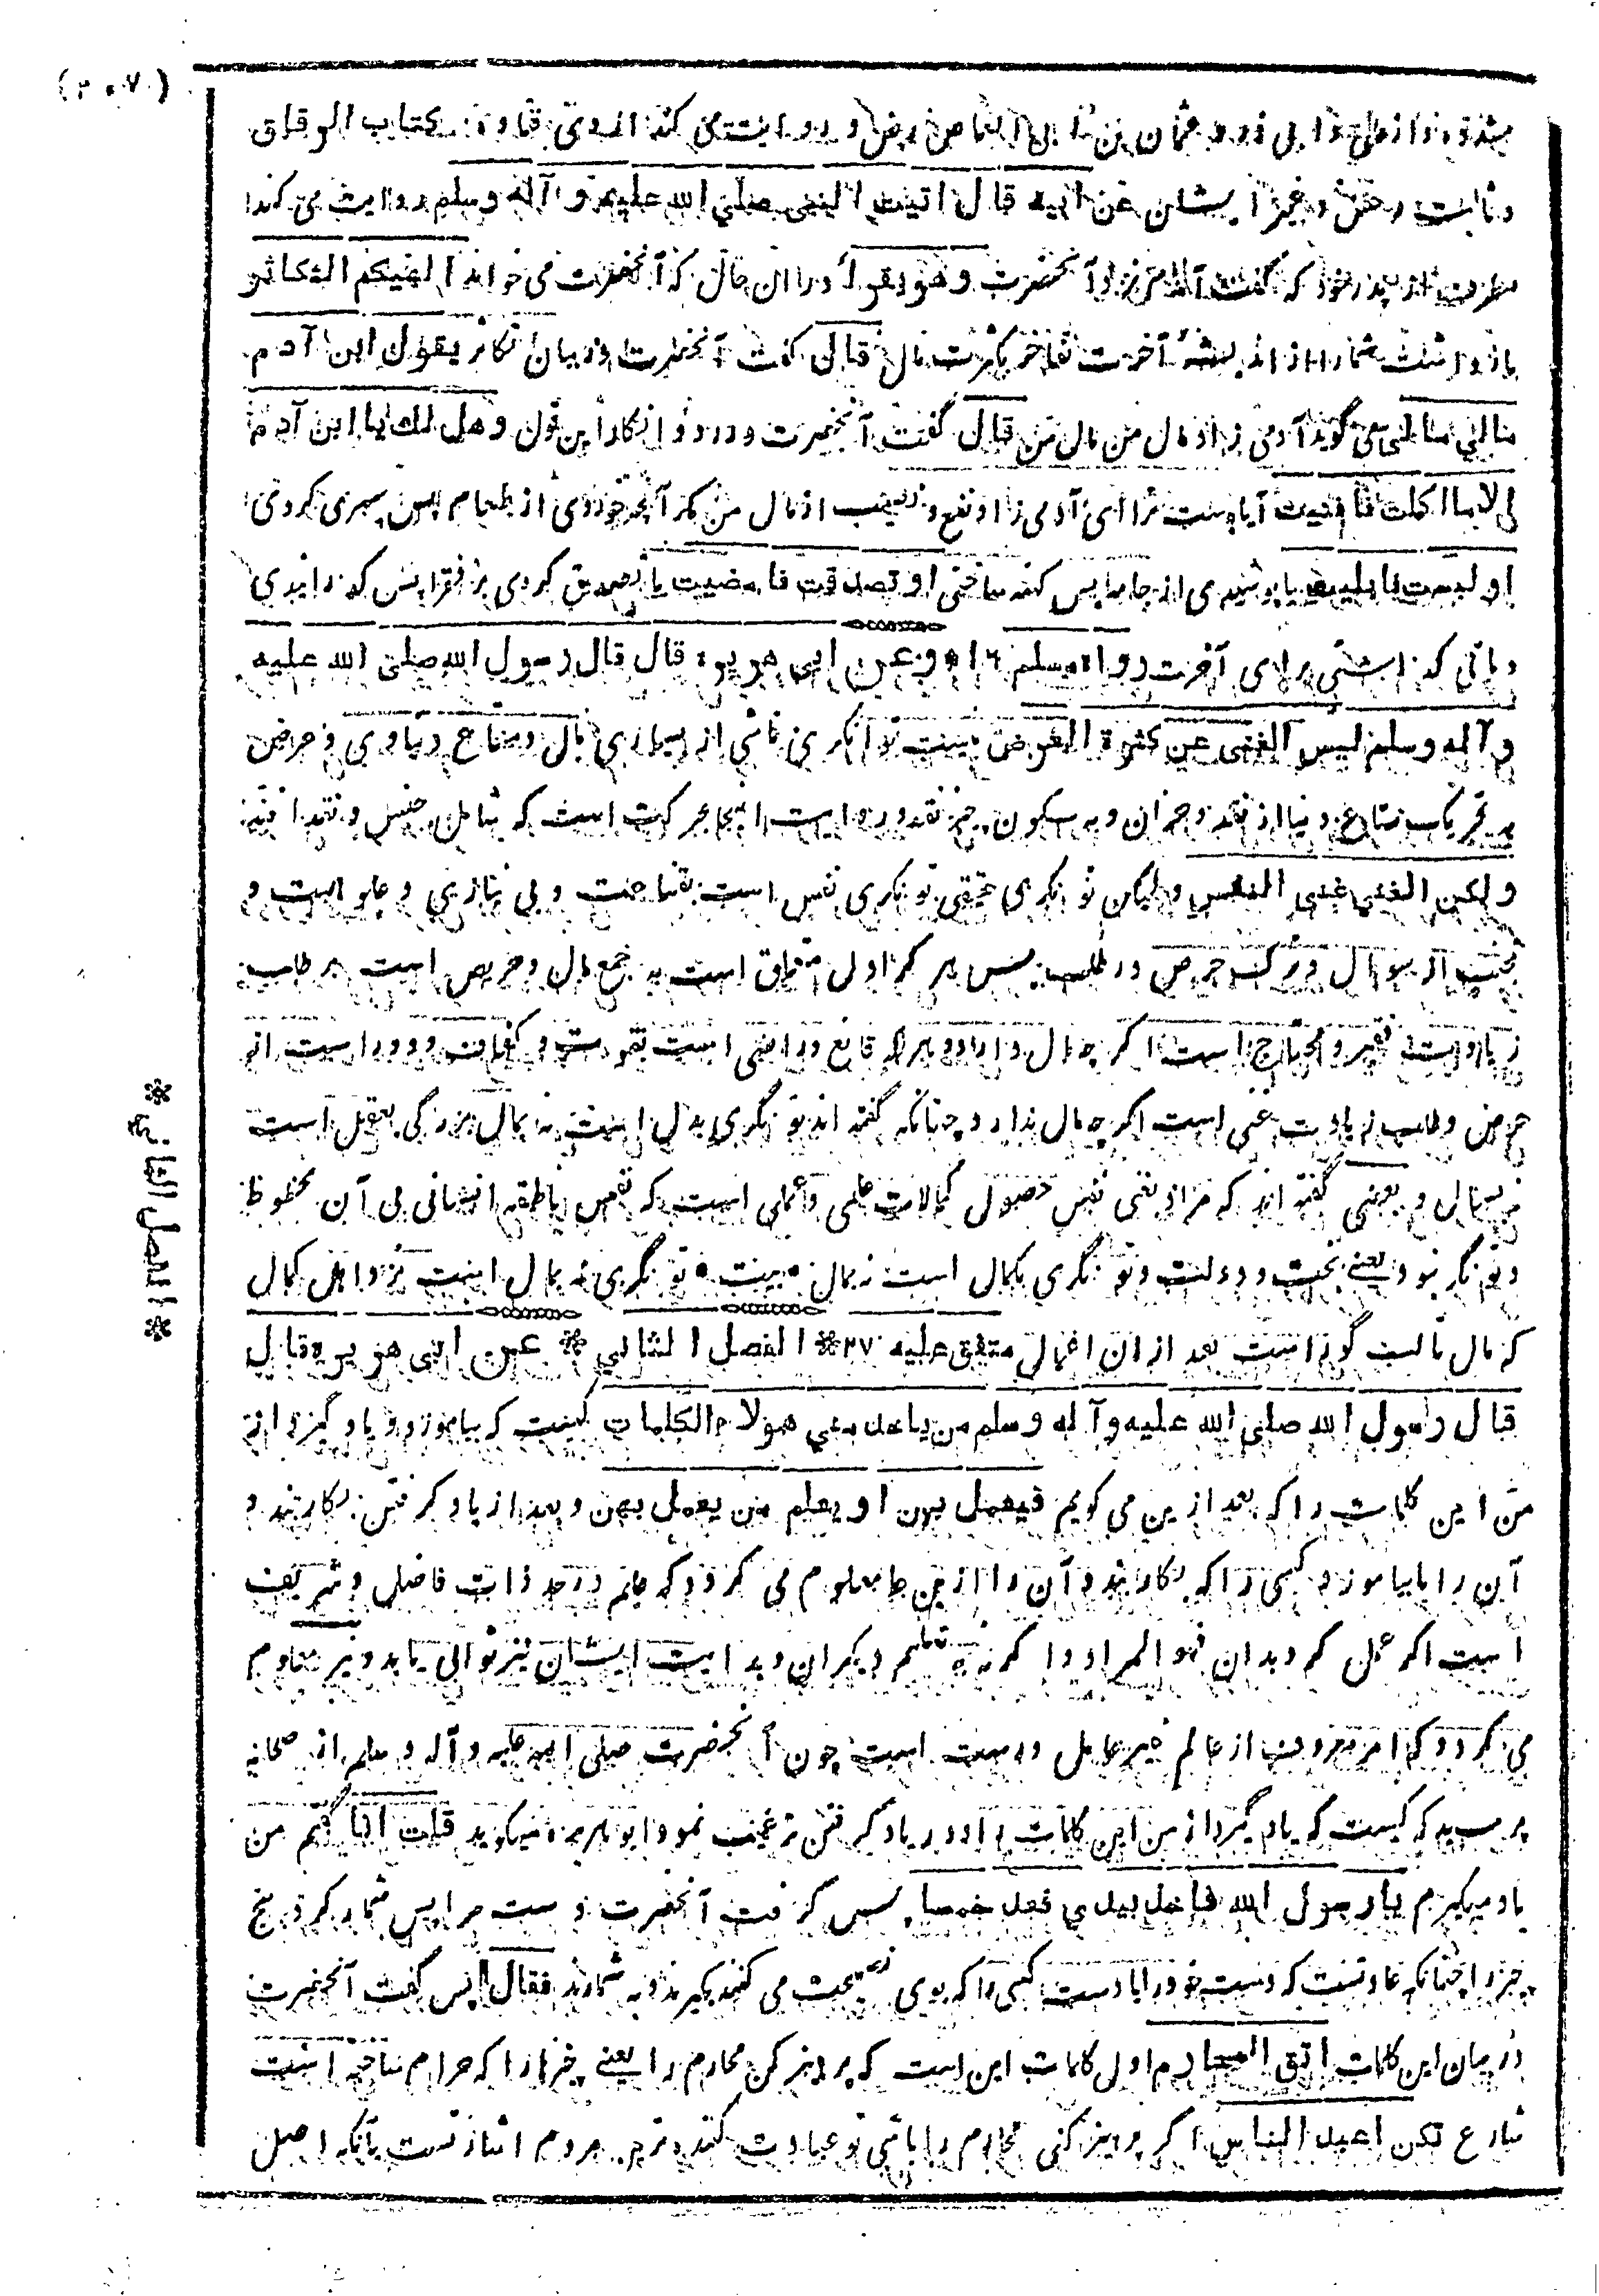 (٢٠٧)
از علی و ابی ذر و عثمان بن ابی العاص رض و روایت می کند از وی قتاده کتاب الرقاق
و ثابت و حسن و غیر ایشان عن ابیه قال اتیت النبی صلی الله علیه و آله وسلم روایت می کند
مطرف از پدر خود که گفت آمدم نزد آنحضرت و هو یقرأ و در ان حال که آنحضرت می خواند الهیکم التکاثر
باز داشت شما را از اندیشهٔ آخرت تفاخر بکثرت مال قال گفت آنحضرت در بیان تکاثر یقول ابن آدم
مالی مالی می گوید آدمی زاد مال من مال من قال گفت آنحضرت در رد و انکار این قول و هل لك یا ابن آدم
الا ما اکلت فافنیت آیا هست ترا ای آدمی زاد نفع و نصیب از مال من مگر آنچه خوردی از طعام پس سپری کردی
او لبست فابلیت یا پوشیدی از جامه پس کهنه ساختی او تصدقت فامضیت یا تصدق کردی بر فقرا پس گذرانیدی
و باقی گذاشتی برای آخرت رواه مسلم ١٦ و عن ابی هریره قال قال رسول الله صلی الله علیه
و آله وسلم لیس الغنی عن کثرة العرض نیست توانگری ناشی از بسیاری مال و متاع دنیاوی و عرض
به تحریک متاع دنیا از نقد و جز آن و به سکون جز نقد و روایت اینجا بحرکت است که شامل جنس و نقد افتد
ولکن الغنی غنی النفس و لیکن توانگری حقیقی توانگری نفس است بقناعت و بی نیازی و علو همت و
تجنب از سوال و ترک حرص در طلب پس هر که او متعلق است به جمع مال و حریص است بر طلب
زیادت فقیر و محتاج است اگر چه مال دارد و هر که قانع و راضی است بقوت و کفاف و دور است از
حرص و طلب زیادت غنی است اگر چه مال ندارد چنانکه گفته اند توانگری بدل است نه بمال بزرگی بعقل است
نه بسال و بعضی گفته اند که مراد بغنی نفس حصول کمالات علمی و عملی است که نفس ناطقه انسانی بی آن محظوظ
و توانگر نبود یعنی بخت و دولت و توانگری بکمال است نه بمال ٭ بیت ٭ توانگری نه بمال است نزد اهل کمال
که مال تا لب گور است بعد از ان اعمال متفق علیه ٢٧ ❊ الفصل الثانی ❊ عن ابی هریره قال
قال رسول الله صلی الله علیه و آله وسلم من یاخذ عنی هولاء الکلمات کیست که بیاموزد و یاد گیرد از
من این کلمات را که بعد ازین می گویم فیعمل بهن او یعلم من یعمل بهن و بعد از یاد گرفتن بکار بندد و
آن را یا بیاموزد کسی را که بکار بندد آن را ازین جا معلوم می گردد که علم در حد ذات فاضل و شریف
است اگر عمل کرد بدان فهو المراد و اگر نه به تعلیم دیگران و هدایت ایشان نیز ثوابی یابد و نیز معلوم
می گردد که امر معروف از عالم غیر عامل درست است چون آنحضرت صلی الله علیه و آله و سلم از صحابه
پرسید که کیست که یاد گیرد از من این کلمات را و در یاد گرفتن ترغیب نمود ابو هریره میگوید قلت انا گفتم من
یاد میگیرم یا رسول الله فاخذ بیدی فعد خمسا پس گرفت آنحضرت دست مرا پس شمار کرد پنج
چیز را چنانکه عادتست که دست خود را با دست کسی را که بوی نصیحت می کنند بگیرند و به شمارند فقال پس گفت آنحضرت
در بیان این کلمات اتق المحارم اول کلمات این است که پرهیز کن محارم را یعنی چیزها را که حرام ساخته است
شارع تکن اعبد الناس اگر پرهیز کنی محارم را باشی تو عبادت کننده ترین مردم اشارتست بآنکه اصل
❊ الفصل الثانی ❊